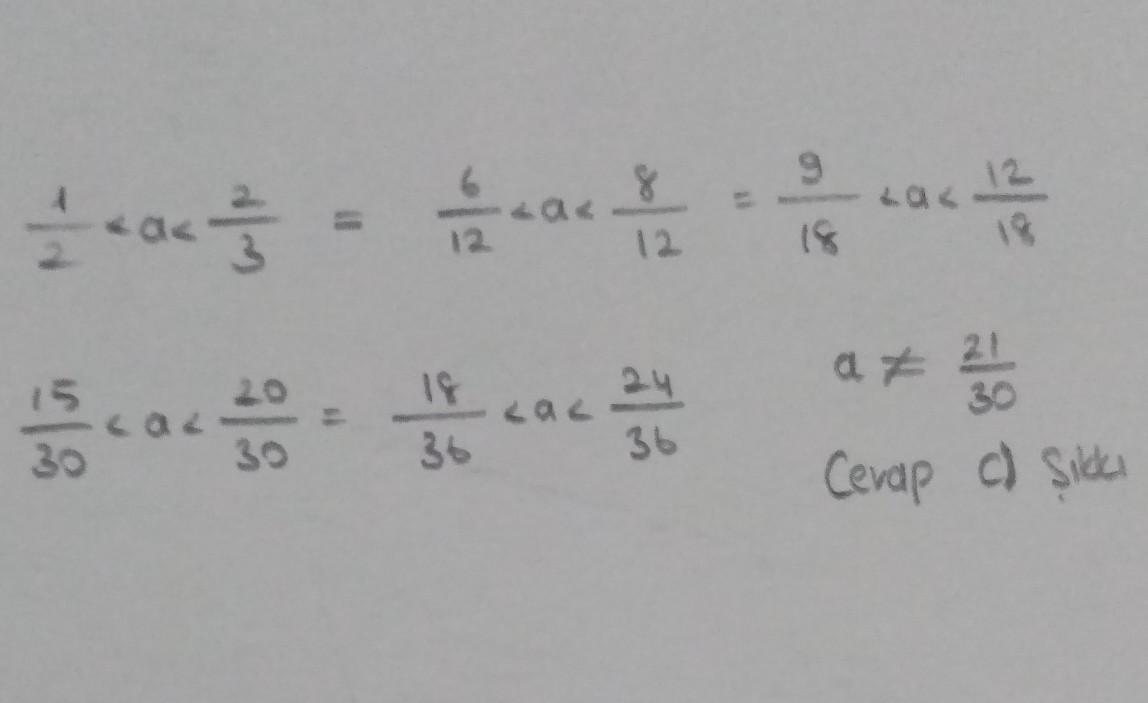 1/2 < a < 2/3 = 6/12 < a < 8/12 = 9/18 < a < 12/18
15/30 < a < 20/30 = 18/36 < a < 24/36
a ≠ 21/30
Cevap c) şıkkı